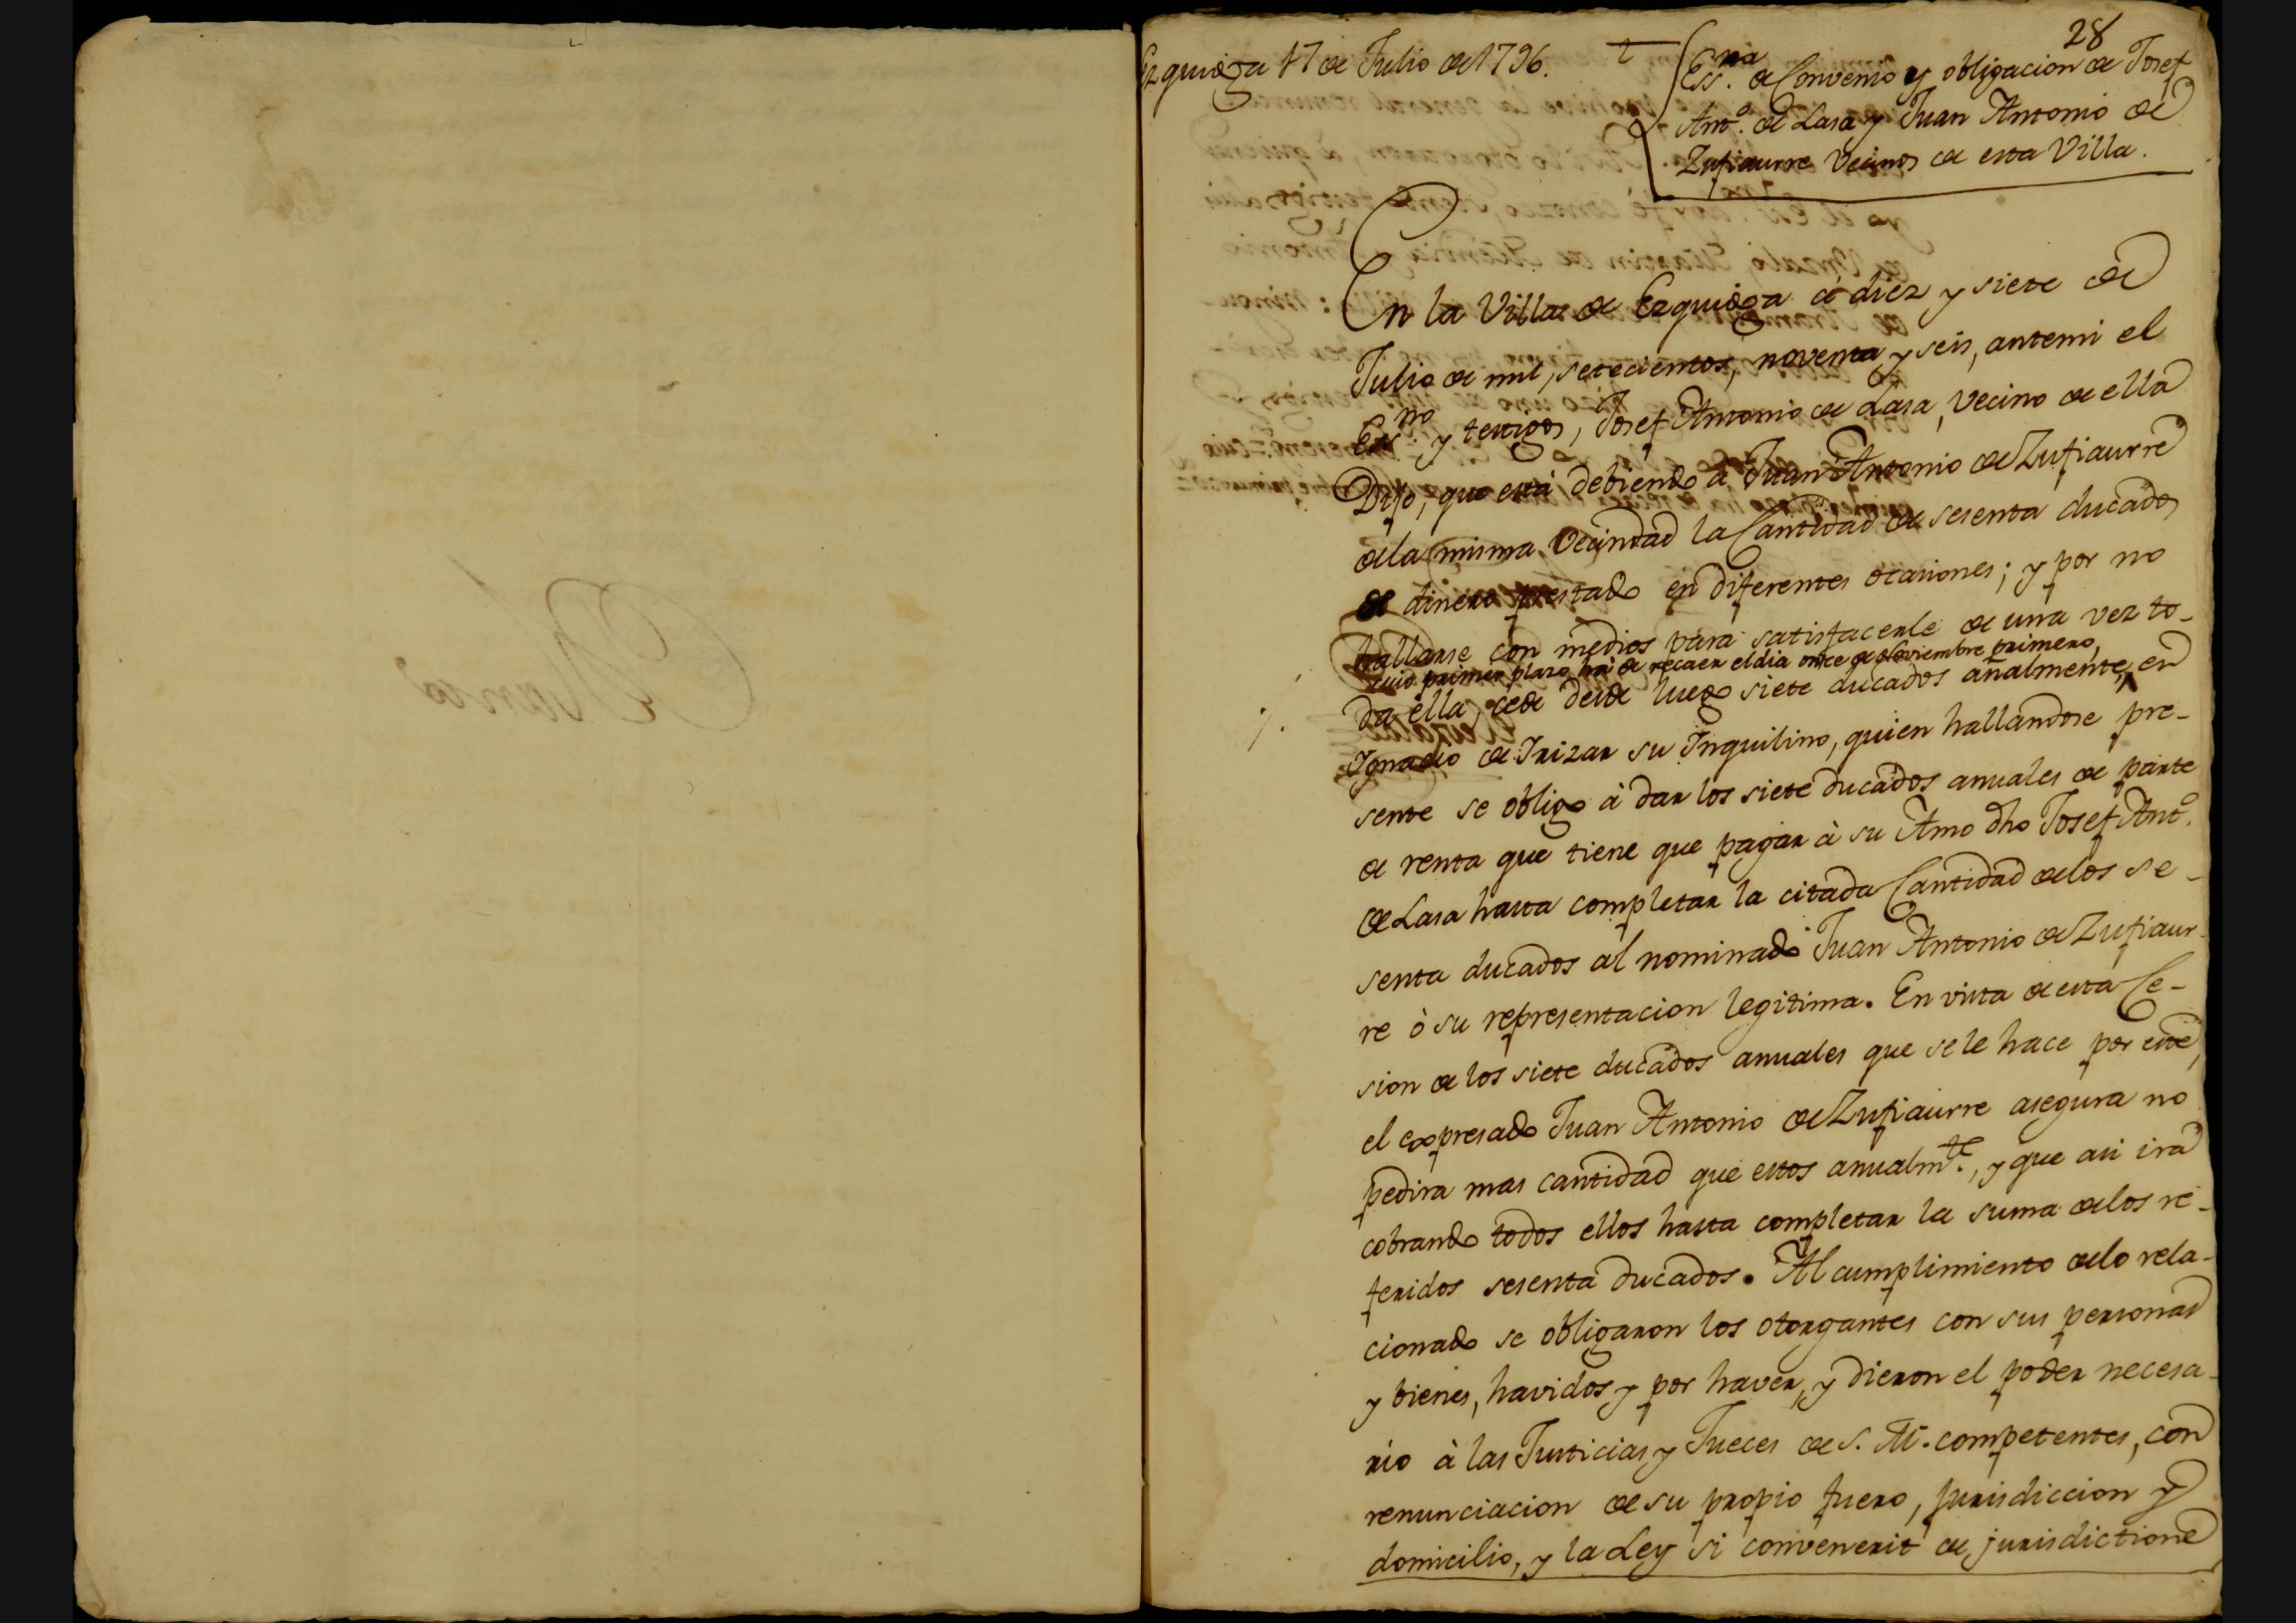 28
Ezquioga 17 de Julio de 1796.
Ess.na de Convenio y obligacion de Josef
Ant.o de Lasa y Juan Antonio de
Zufiaurre Vecinos de esta Villa.
En la Villa de Ezquioga à diez y siete de
Julio de mil, setecientos, noventa y seis, antemi el
Ess.no y testigos, Josef Antonio de Lasa, Vecino de ella
Dijo, que està debiendo à Juan Antonio de Zufiaurre
dela misma Vecindad la Cantidad de sesenta ducados
de dinero prestado en diferentes ocasiones; y por no
hallarse con medios para satisfacerle de una vez to-
cuio primer plazo ha de recaer el dia once de Noviembre primero,
da ella, cede desde luego siete ducados añalmente, en
Ignacio de Irizar su Inquilino, quien hallandose pre-
sente se obligo à dar los siete ducados anuales de parte
de renta que tiene que pagar à su Amo dho Josef Ant.o
de Lasa hasta completar la citada Cantidad delos se-
senta ducados al nominado Juan Antonio de Zufiaur-
re ò su representacion legitima. En vista de esta Ce-
sion de los siete ducados anuales que se le hace por este,
el expresado Juan Antonio de Zufiaurre asegura no
pedira mas cantidad que estos anualm.te, y que asi irà
cobrando todos ellos hasta completar la suma delos re-
feridos sesenta ducados. Al cumplimiento delo rela-
cionado se obligaron los otorgantes con sus personas
y bienes, havidos y por haver, y dieron el poder necesa-
rio à las Justicias y Jueces de S. M. competentes, con
renunciacion de su propio fuero, jurisdiccion y
domicilio, y la Ley si convenerit de jurisdictione